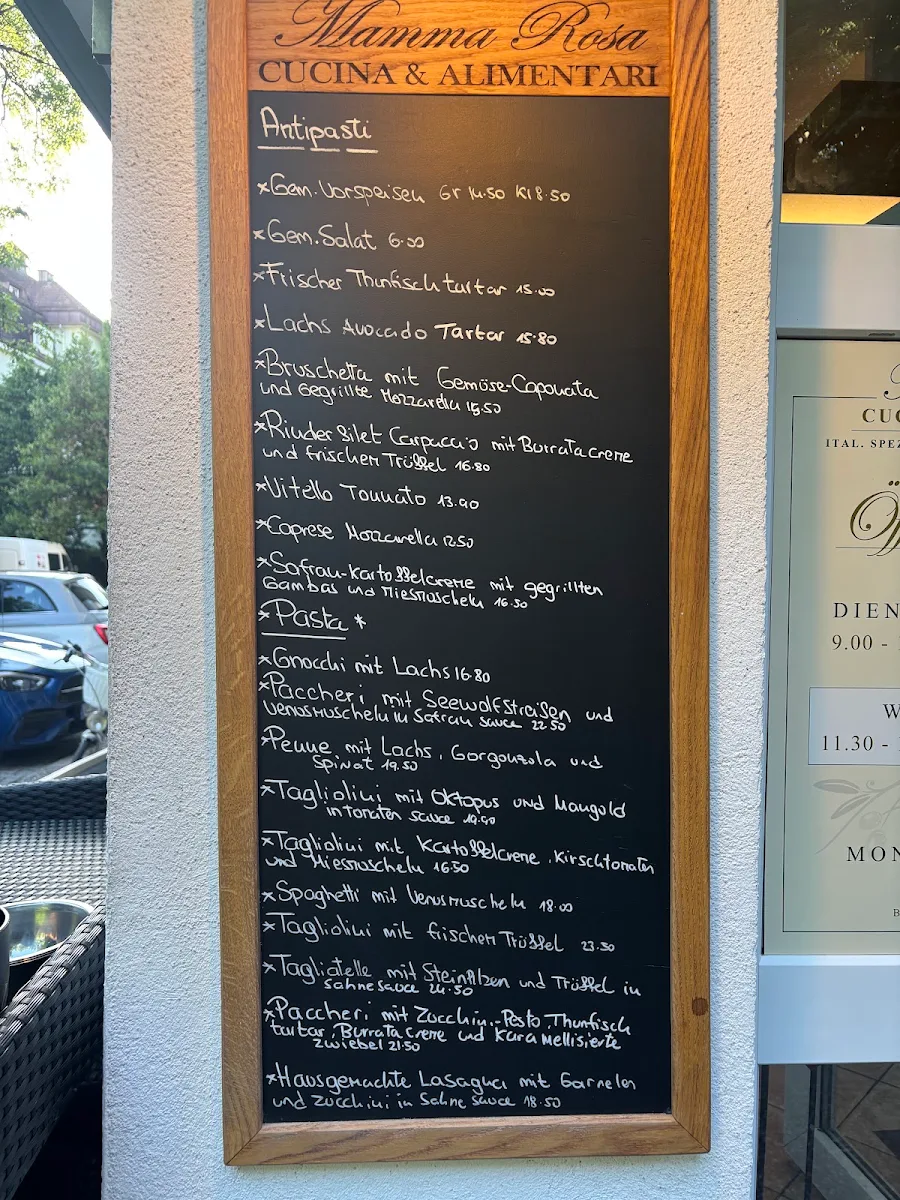 Mamma Rosa
CUCINA & ALIMENTARI
Antipasti
*Gem. Vorspeisen Gr 14.50 Kl 8.50
*Gem. Salat 6.90
*Frischer Thunfischtartar 15.00
*Lachs Avocado Tartar 15.80
*Bruschetta mit Gemüse-Caponata
und Gegrillte Mozzarella 15.50
*Rinderfilet Carpaccio mit Burrata creme
und frischem Trüffel 16.80
*Vitello Tonnato 13.90
*Caprese Mozzarella 12.50
*Safran-Kartoffelcreme mit gegrillten
Gambas und Miesmuscheln 16.50
*Pasta*
*Gnocchi mit Lachs 16.80
*Paccheri mit Seewolfstreifen und
Venusmuscheln in Safran sauce 22.50
*Penne mit Lachs, Gorgonzola und
Spinat 19.50
*Tagliolini mit Oktopus und Mangold
in tomaten sauce 19.90
*Tagliolini mit Kartoffelcreme, Kirschtomaten
und Miesmuscheln 16.50
*Spaghetti mit Venusmuscheln 18.00
*Tagliolini mit frischem Trüffel 23.50
*Tagliatelle mit Steinpilzen und Trüffel in
sahnesauce 24.50
*Paccheri mit Zucchini-Pesto, Thunfisch
tartar, Burrata creme und karamellisierte
zwiebel 21.50
*Hausgemachte Lasagna mit Garnelen
und Zucchini in Sahne sauce 18.50
CUC
ITAL. SPEZ
DIEN
9.00 -
W
11.30 -
MON